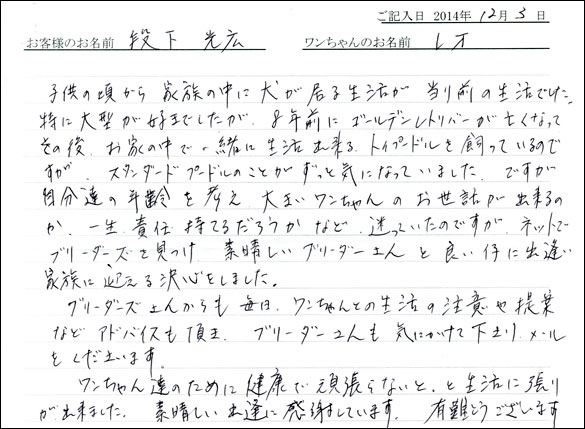 ご記入日 2014年 12月 3日
お客様のお名前 段下 光広 ワンちゃんのお名前 レオ
子供の頃から 家族の中に 犬が 居る生活が 当り前の生活でした。
特に大型が好きでしたが、8年前に ゴールデンレトリバーが亡くなって
その後、お家の中で一緒に生活出来る トイプードルを飼っているので
すが、スタンダードプードルのことがずっと気になっていました。ですが
自分達の年齢を考え 大きいワンちゃんの お世話が出来るの
か、一生責任持てるだろうか など、迷っていたのですが、ネットで
ブリーダーズを見つけ 素晴しいブリーダーさんと良い仔に出逢い
家族に迎える決心をしました。
ブリーダーズさんからも毎日、ワンちゃんとの生活の注意や提案
など アドバイスも頂き、ブリーダーさんも気にかけて下さり、メール
をくださいます。
ワンちゃん達のために健康で頑張らないと、と生活に張り
が出来ました。素晴しい出逢に感謝しています。 有難どうございます